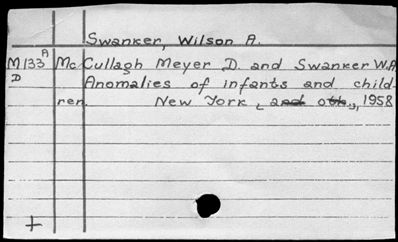 Swanker, Wilson A.
M133 A McCullagh Meyer D. and Swanker W.A
D Anomalies of infants and child-
ren. New York, and oth., 1958